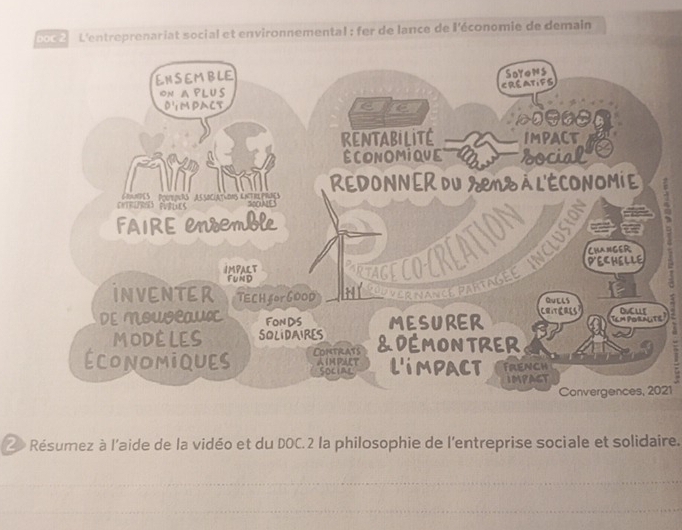 DOC 2 L'entreprenariat social et environnemental : fer de lance de l'économie de demain
ENSEMBLE
ON A PLUS
D'IMPACT
SOYONS
CRÉATIFS
RENTABILITÉ
ÉCONOMIQUE
IMPACT
social
REDONNER DU sens À L'ÉCONOMIE
GRANDES
ENTREPRISES
POUVOIRS
PUBLICS
ASSOCIATIONS
ENTREPRISES
SOCIALES
FAIRE ensemble
PARTAGE CO-CRÉATION INCLUSION
GOUVERNANCE PARTAGÉE
CHANGER
D'ECHELLE
IMPACT
FUND
INVENTER
DE nouveaux
MODÈLES
ÉCONOMIQUES
TECH for GOOD
FONDS
SOLIDAIRES
CONTRATS
À IMPACT
SOCIAL
MESURER
& DÉMONTRER
L'IMPACT
QUELS
CRITÈRES
QUELLE
TEMPORALITÉ
FRENCH
IMPACT
Convergences, 2021
2 Résumez à l'aide de la vidéo et du DOC. 2 la philosophie de l'entreprise sociale et solidaire.